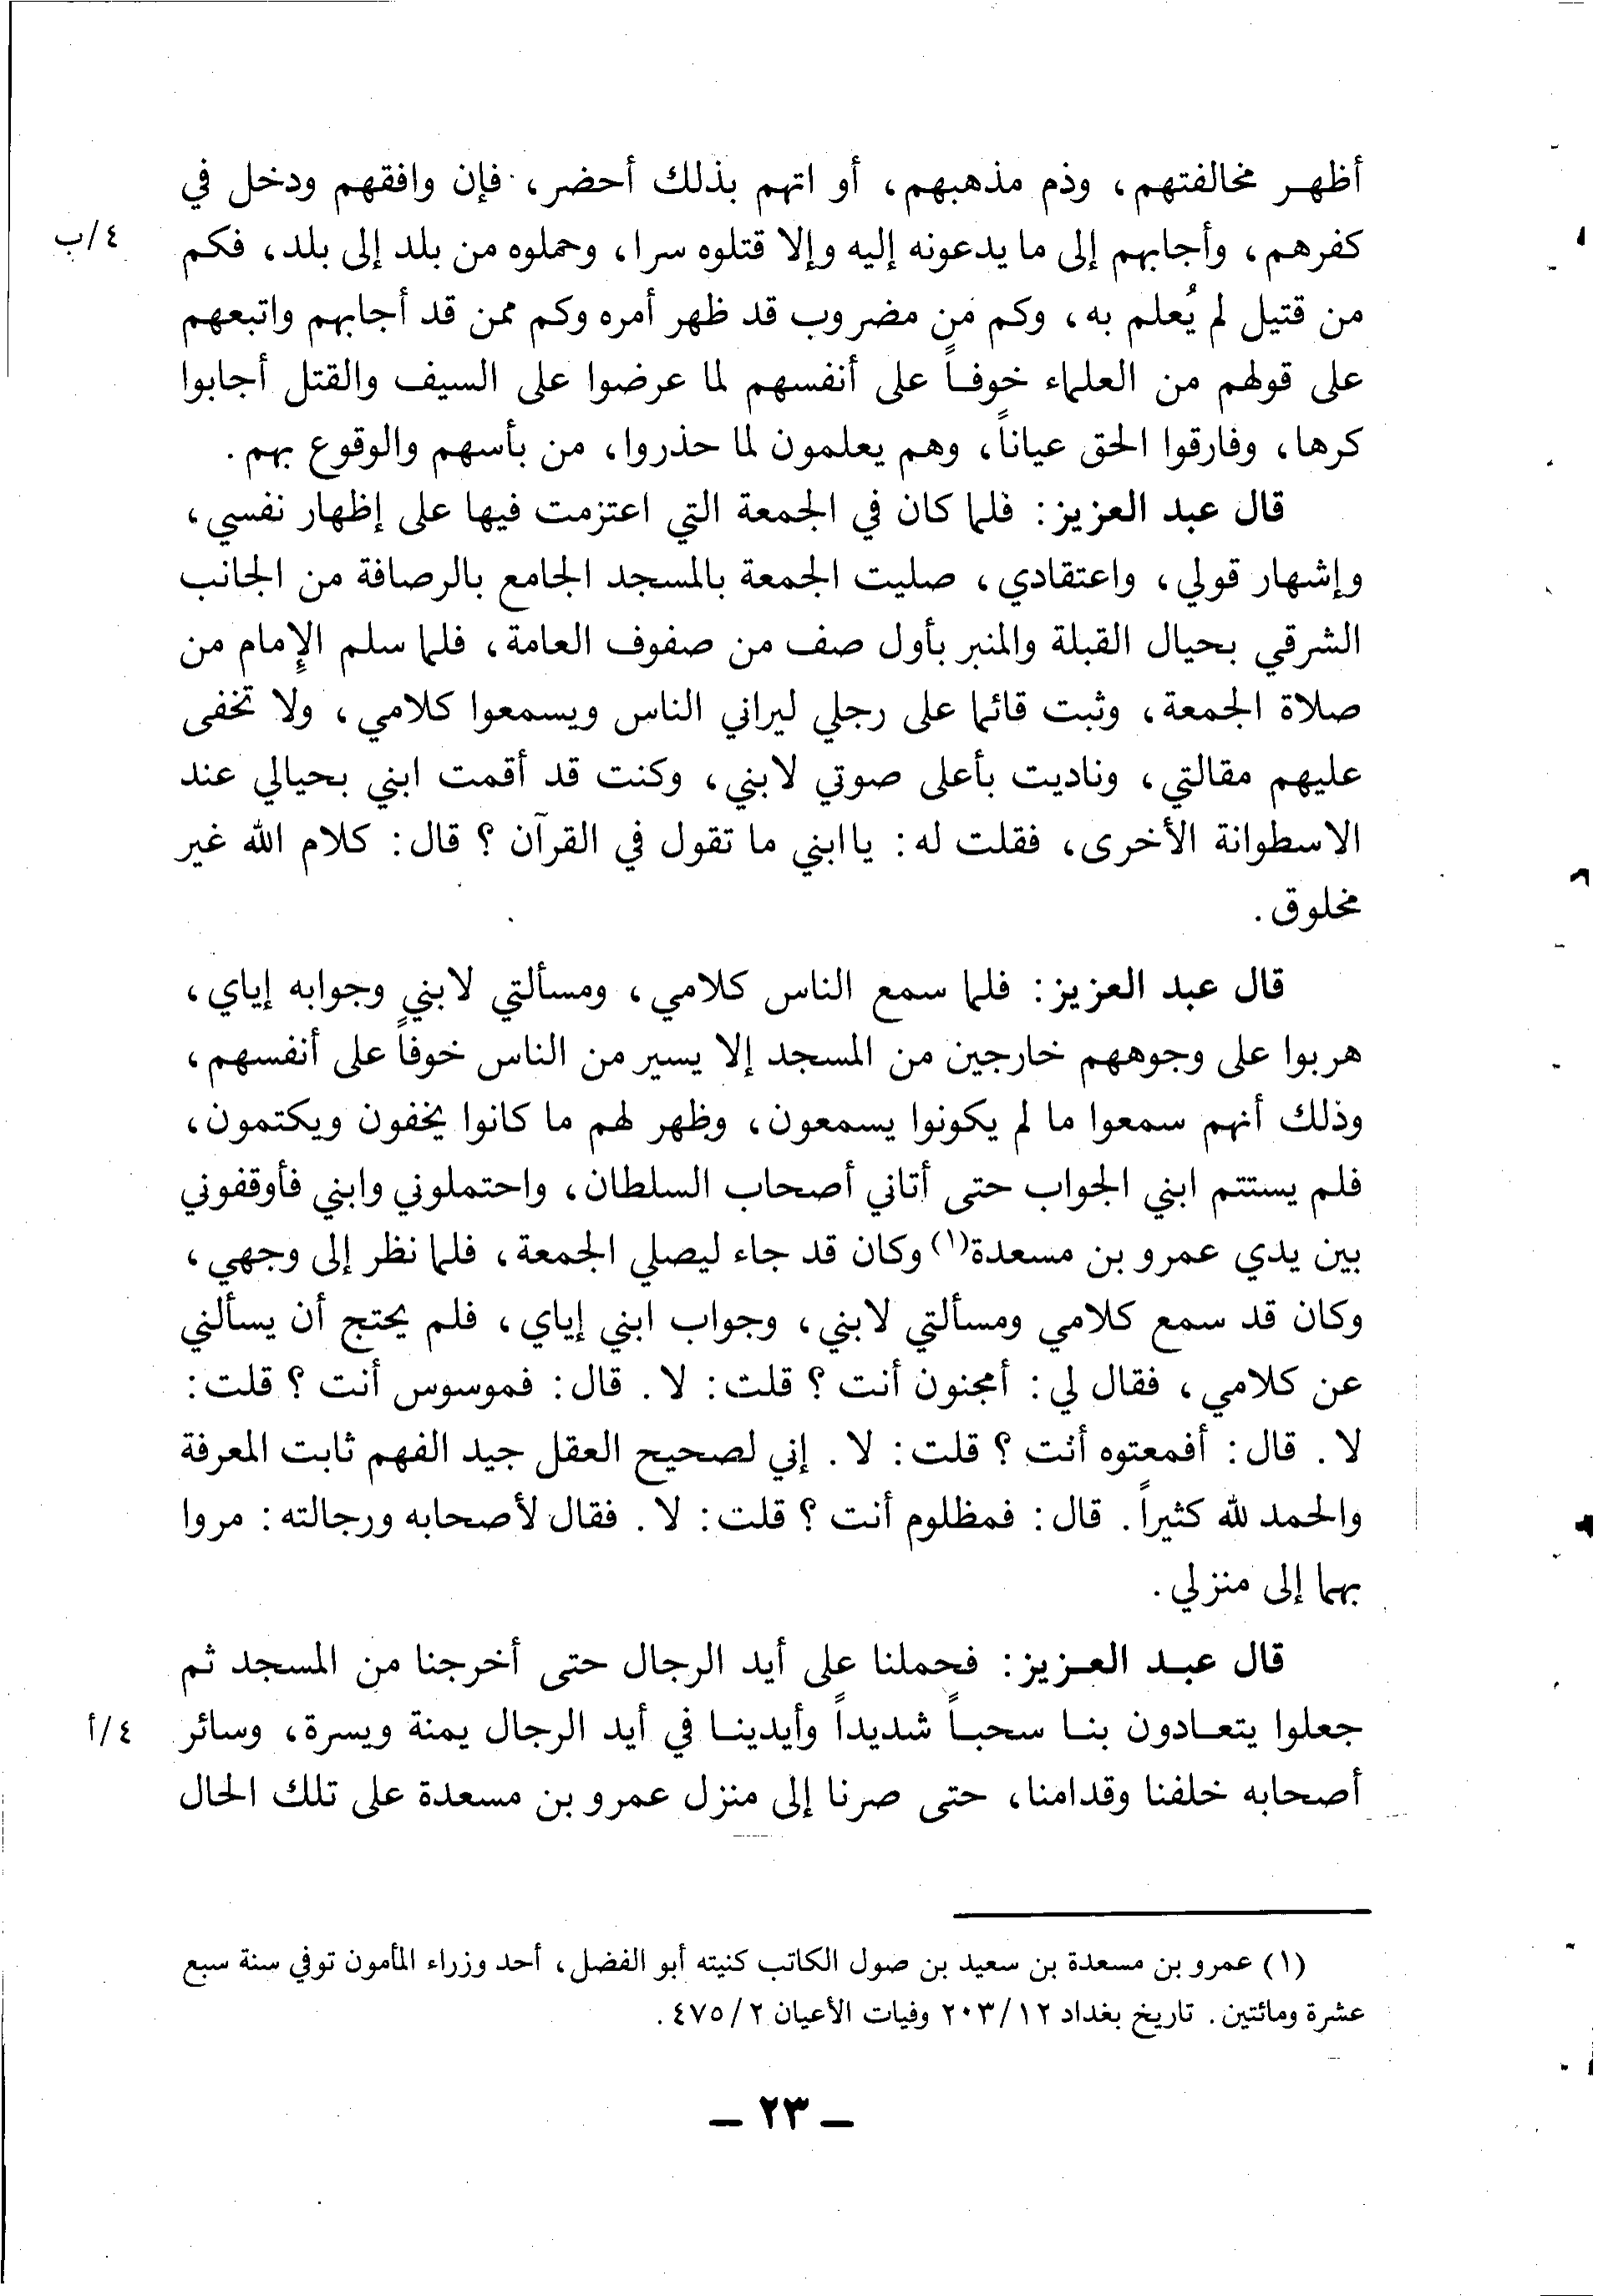 أظهر مخالفتهم، وذم مذهبهم، أو اتهم بذلك أحضر، فإن وافقهم ودخل في
كفرهم، وأجابهم إلى ما يدعونه إليه وإلا قتلوه سرا، وحملوه من بلد إلى بلد، فكم
٤/ب
من قتيل لم يُعلم به، وكم من مضروب قد ظهر أمره وكم ممن قد أجابهم واتبعهم
على قولهم من العلماء خوفاً على أنفسهم لما عرضوا على السيف والقتل أجابوا
كرها، وفارقوا الحق عياناً، وهم يعلمون لما حذروا، من بأسهم والوقوع بهم.
قال عبد العزيز: فلما كان في الجمعة التي اعتزمت فيها على إظهار نفسي،
وإشهار قولي، واعتقادي، صليت الجمعة بالمسجد الجامع بالرصافة من الجانب
الشرقي بحيال القبلة والمنبر بأول صف من صفوف العامة، فلما سلم الإمام من
صلاة الجمعة، وثبت قائما على رجلي ليراني الناس ويسمعوا كلامي، ولا تخفى
عليهم مقالتي، وناديت بأعلى صوتي لابني، وكنت قد أقمت ابني بحيالي عند
الاسطوانة الأخرى، فقلت له: يا ابني ما تقول في القرآن؟ قال: كلام الله غير
مخلوق.
قال عبد العزيز: فلما سمع الناس كلامي، ومسألتي لابني وجوابه إياي،
هربوا على وجوههم خارجين من المسجد إلا يسير من الناس خوفاً على أنفسهم،
وذلك أنهم سمعوا ما لم يكونوا يسمعون، وظهر لهم ما كانوا يخفون ويكتمون،
فلم يستتم ابني الجواب حتى أتاني أصحاب السلطان، واحتملوني وابني فأوقفوني
بين يدي عمرو بن مسعدة(١) وكان قد جاء ليصلي الجمعة، فلما نظر إلى وجهي،
وكان قد سمع كلامي ومسألتي لابني، وجواب ابني إياي، فلم يحتج أن يسألني
عن كلامي، فقال لي: أمجنون أنت؟ قلت: لا. قال: فموسوس أنت؟ قلت:
لا. قال: أفمعتوه أنت؟ قلت: لا. إني لصحيح العقل جيد الفهم ثابت المعرفة
والحمد لله كثيراً. قال: فمظلوم أنت؟ قلت: لا. فقال لأصحابه ورجالته: مروا
بهما إلى منزلي.
قال عبد العزيز: فحملنا على أيد الرجال حتى أخرجنا من المسجد ثم
جعلوا يتعادون بنا سحباً شديداً وأيدينا في أيد الرجال يمنة ويسرة، وسائر
٤/أ
أصحابه خلفنا وقدامنا، حتى صرنا إلى منزل عمرو بن مسعدة على تلك الحال
(١) عمرو بن مسعدة بن سعيد بن صول الكاتب كنيته أبو الفضل، أحد وزراء المأمون توفي سنة سبع
عشرة ومائتين. تاريخ بغداد ٢٠٣/١٢ وفيات الأعيان ٤٧٥/٢.
– ٢٣ –